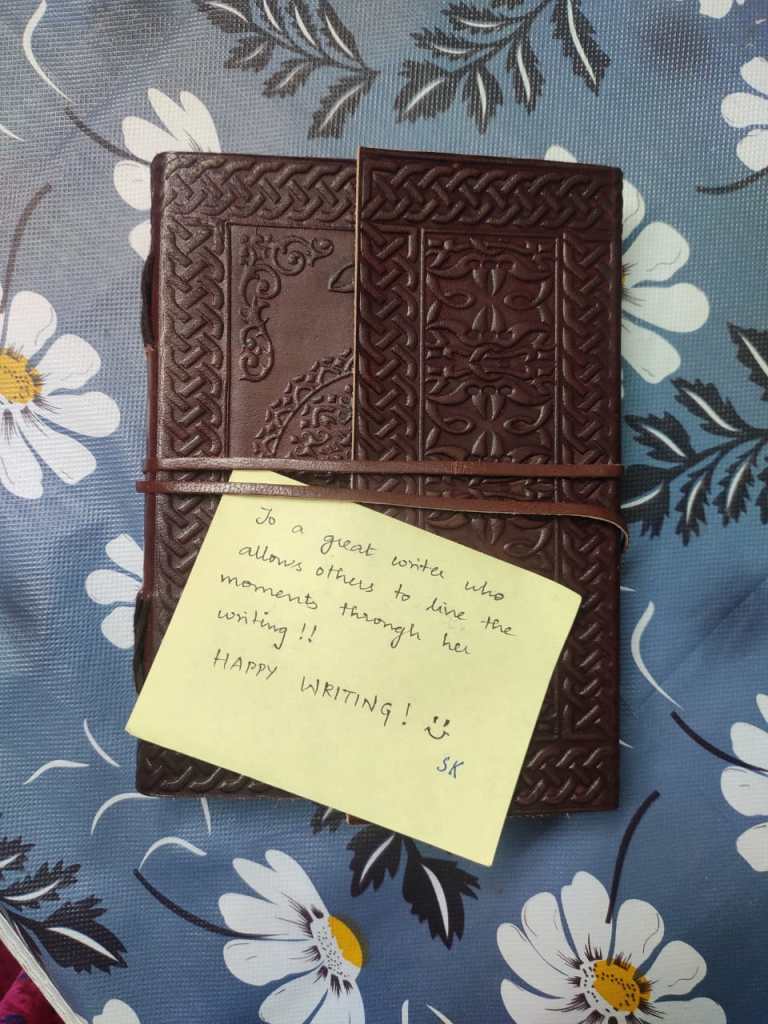 To a great writer who
allows others to live the
moments through her
writing!!
HAPPY WRITING! :)
SK